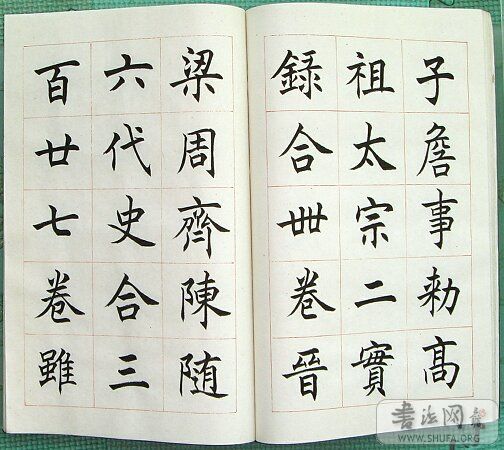 子詹事勑髙
祖太宗二實
録合卌卷晉
梁周齊陳随
六代史合三
百廿七卷雖
书法网
WWW.SHUFA.ORG